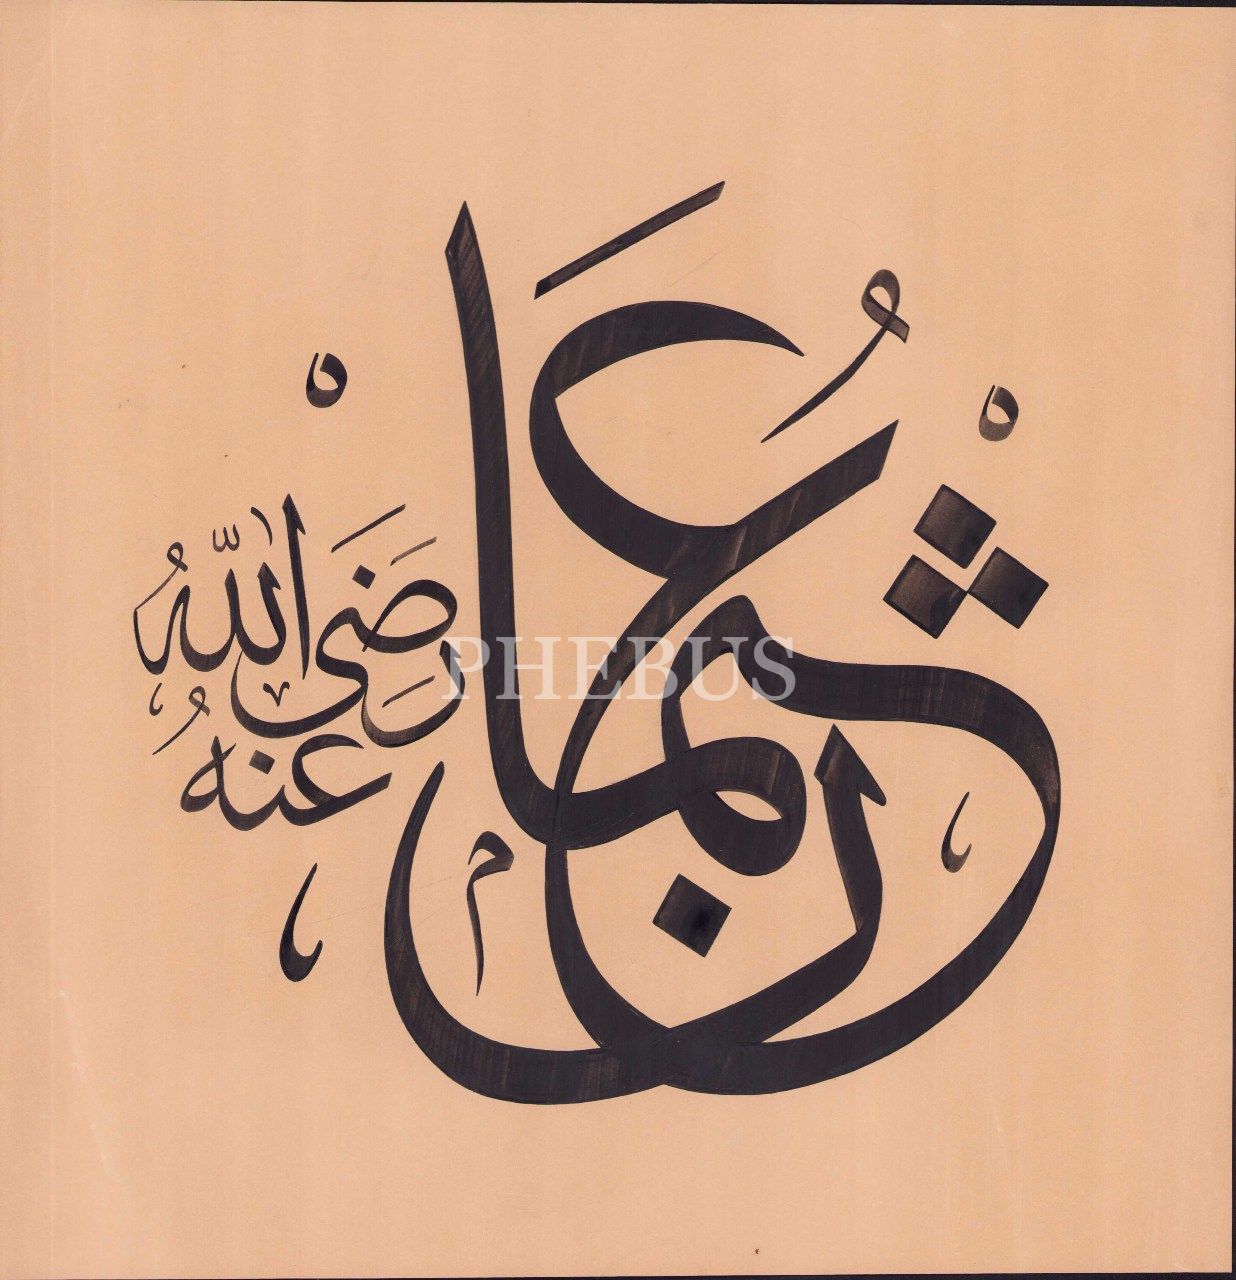 عُثمَان
رَضِيَ اللّٰهُ
عنهُ
PHEBUS